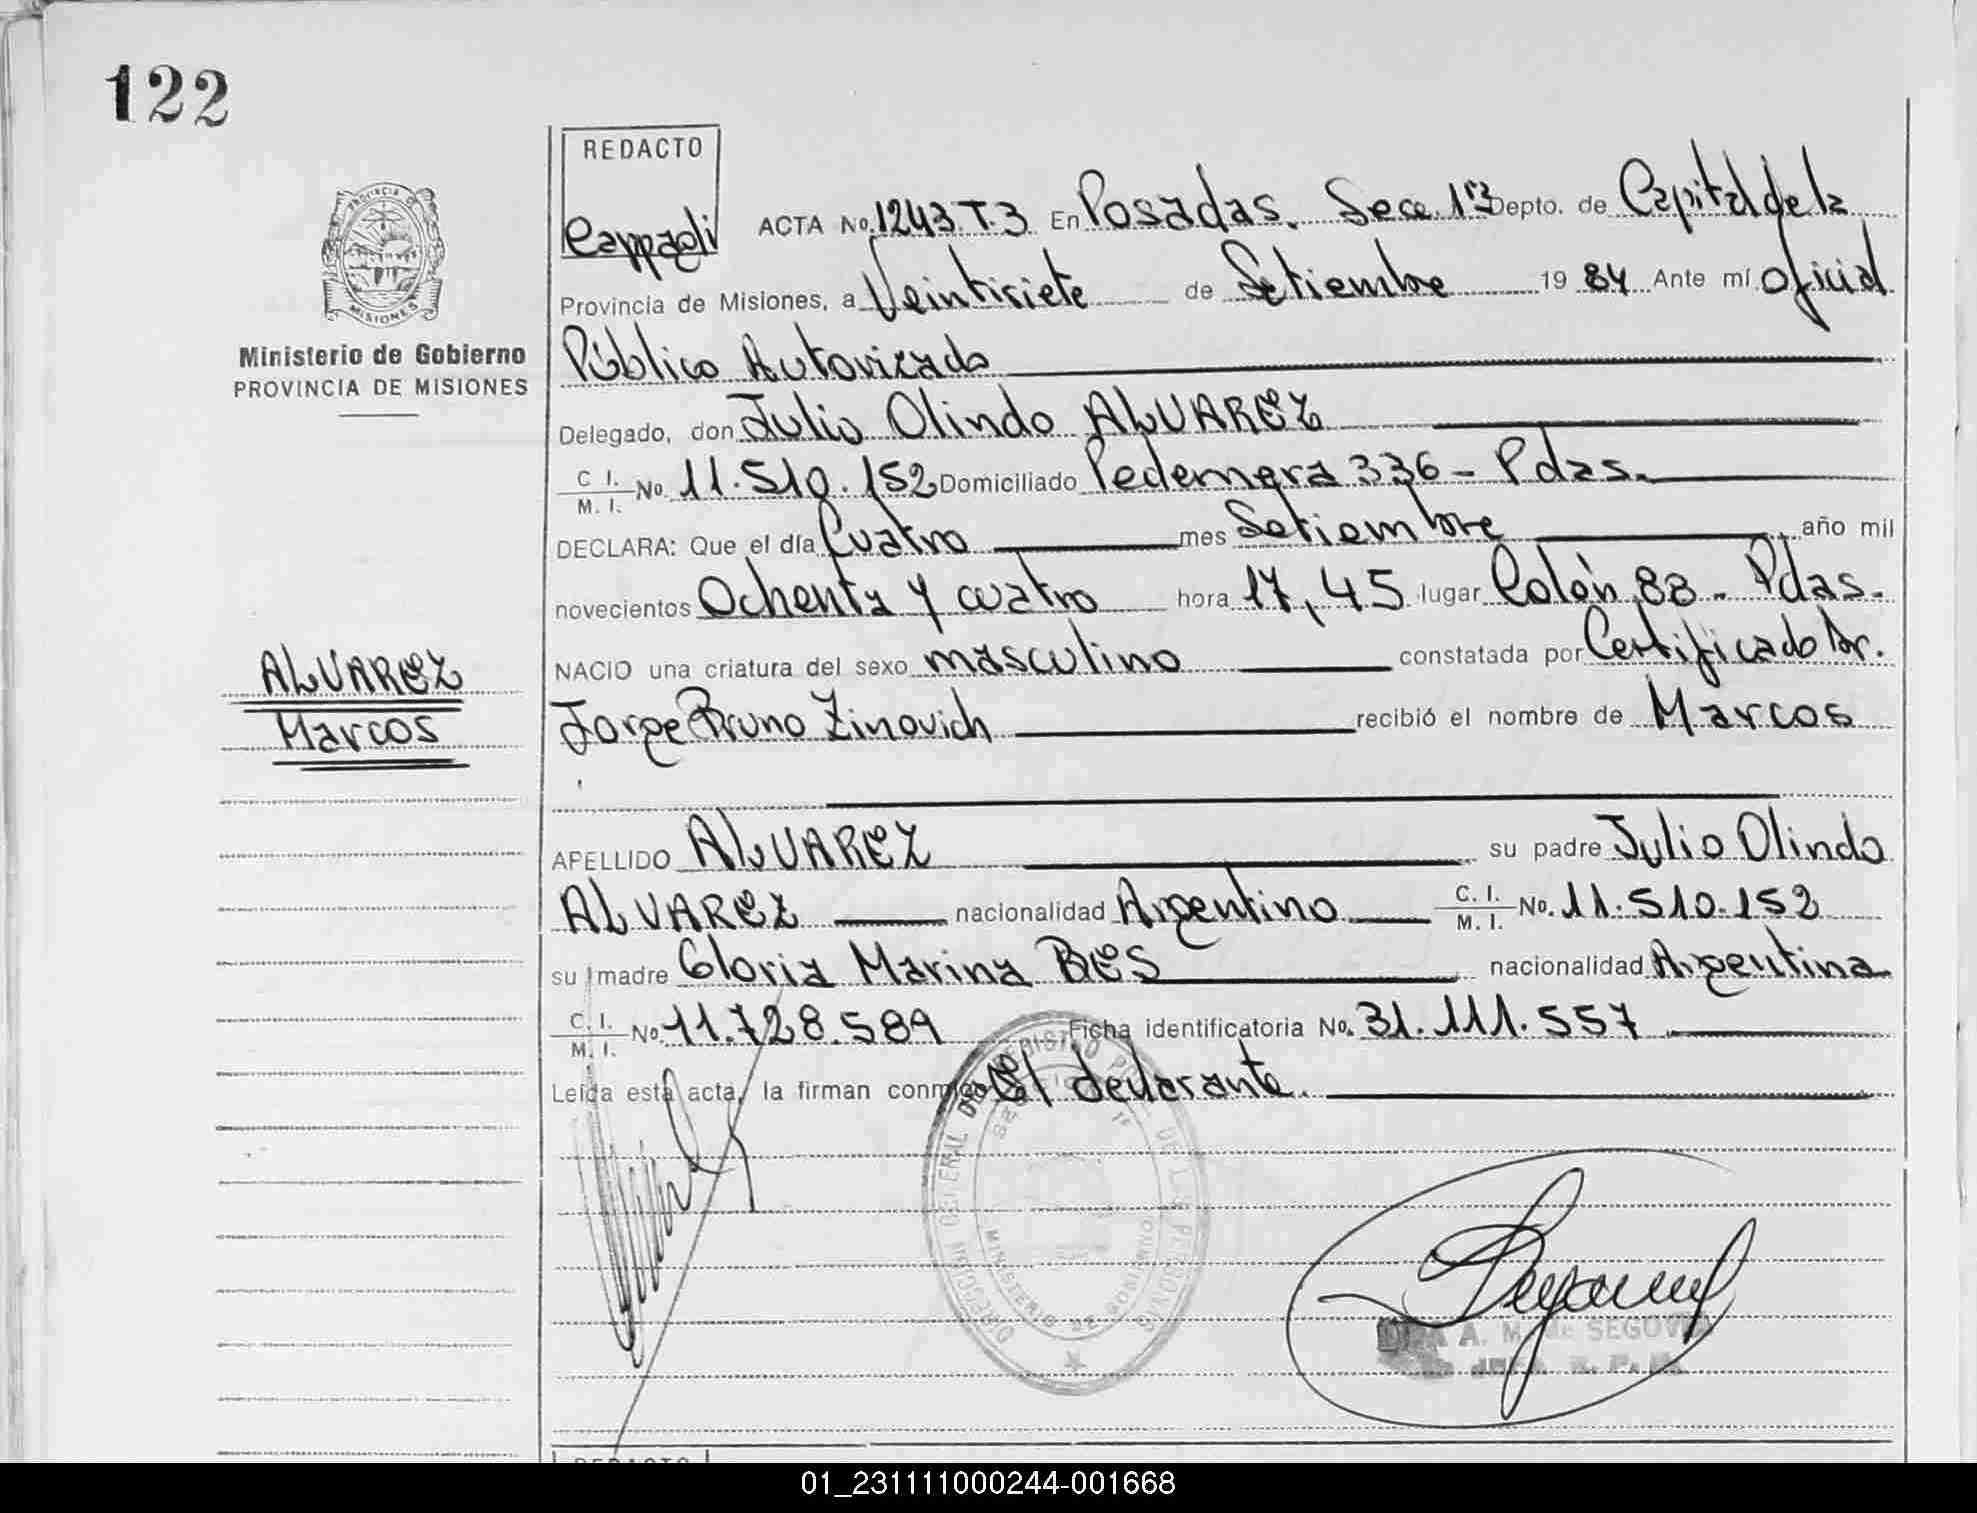 122
REDACTO
Cappagli
PROVINCIA D
MISIONES
ACTA No. 1243 T.3 En Posadas. Secc. 1ra Depto. de Capital de la
Provincia de Misiones, a Veintisiete de Setiembre 19 84 Ante mí Oficial
Ministerio de Gobierno
PROVINCIA DE MISIONES
Público Autorizado
Delegado, don Julio Olindo ALVAREZ
C. I.
M. I. No. 11.510.152 Domiciliado Pedernera 336 - Pdas.
DECLARA: Que el día Cuatro mes Setiembre año mil
novecientos Ochenta y cuatro hora 17,45 lugar Colón 88 - Pdas.
ALVAREZ
Marcos
NACIO una criatura del sexo masculino constatada por Certificado Dr.
Jorge Bruno Zinovich recibió el nombre de Marcos
APELLIDO ALVAREZ su padre Julio Olindo
ALVAREZ nacionalidad Argentino C. I.
M. I. No. 11.510.152
su madre Gloria Marina BES nacionalidad Argentina
C. I.
M. I. No. 11.728.589 Ficha identificatoria No. 31.111.557
Leída esta acta, la firman conmigo El declarante.
DIRECCION GENERAL DEL REGISTRO DE LAS PERSONAS
MINISTERIO DE GOBIERNO
A. M. de SEGOVIA
JEFA R. P. P.
REDACTO
01_231111000244-001668